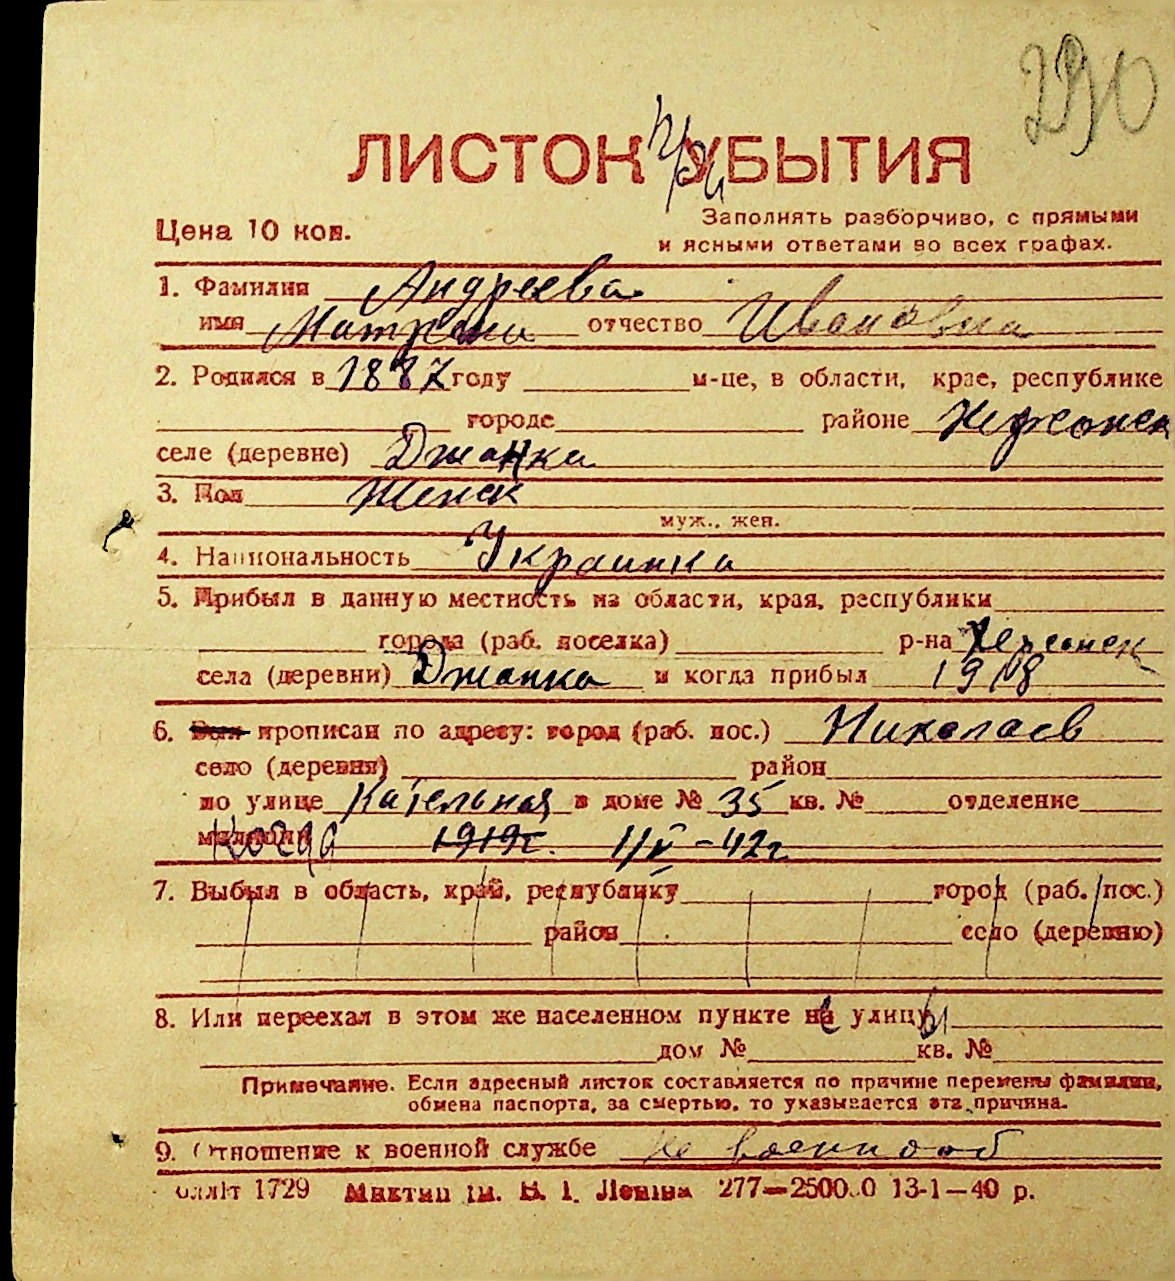 290
ЛИСТОК УБЫТИЯ
при
Цена 10 коп.
Заполнять разборчиво, с прямыми
и ясными ответами во всех графах.
1. Фамилия Андреева
имя Матрена отчество Ивановна
2. Родился в 1887 году м-це, в области, крае, республике
городе районе Херсонск
селе (деревне) Джанка
3. Пол Женск
муж., жен.
4. Национальность Украинка
5. Прибыл в данную местность из области, края, республики
города (раб. поселка) р-на Херсонск
села (деревни) Джанка и когда прибыл 1918
6. Был прописан по адресу: город (раб. пос.) Николаев
село (деревня) район
по улице Кательная в доме № 35 кв. № отделение
милиции Когда 1919г. 1/V-42г
7. Выбыл в область, край, республику город (раб. пос.)
район село (деревню)
8. Или переехал в этом же населенном пункте на улицу
дом № кв. №
Примечание. Если адресный листок составляется по причине перемены фамилии,
обмена паспорта, за смертью, то указывается эта причина.
9. Отношение к военной службе Не военнооб
1729 277—2500 0 13-1—40 р.